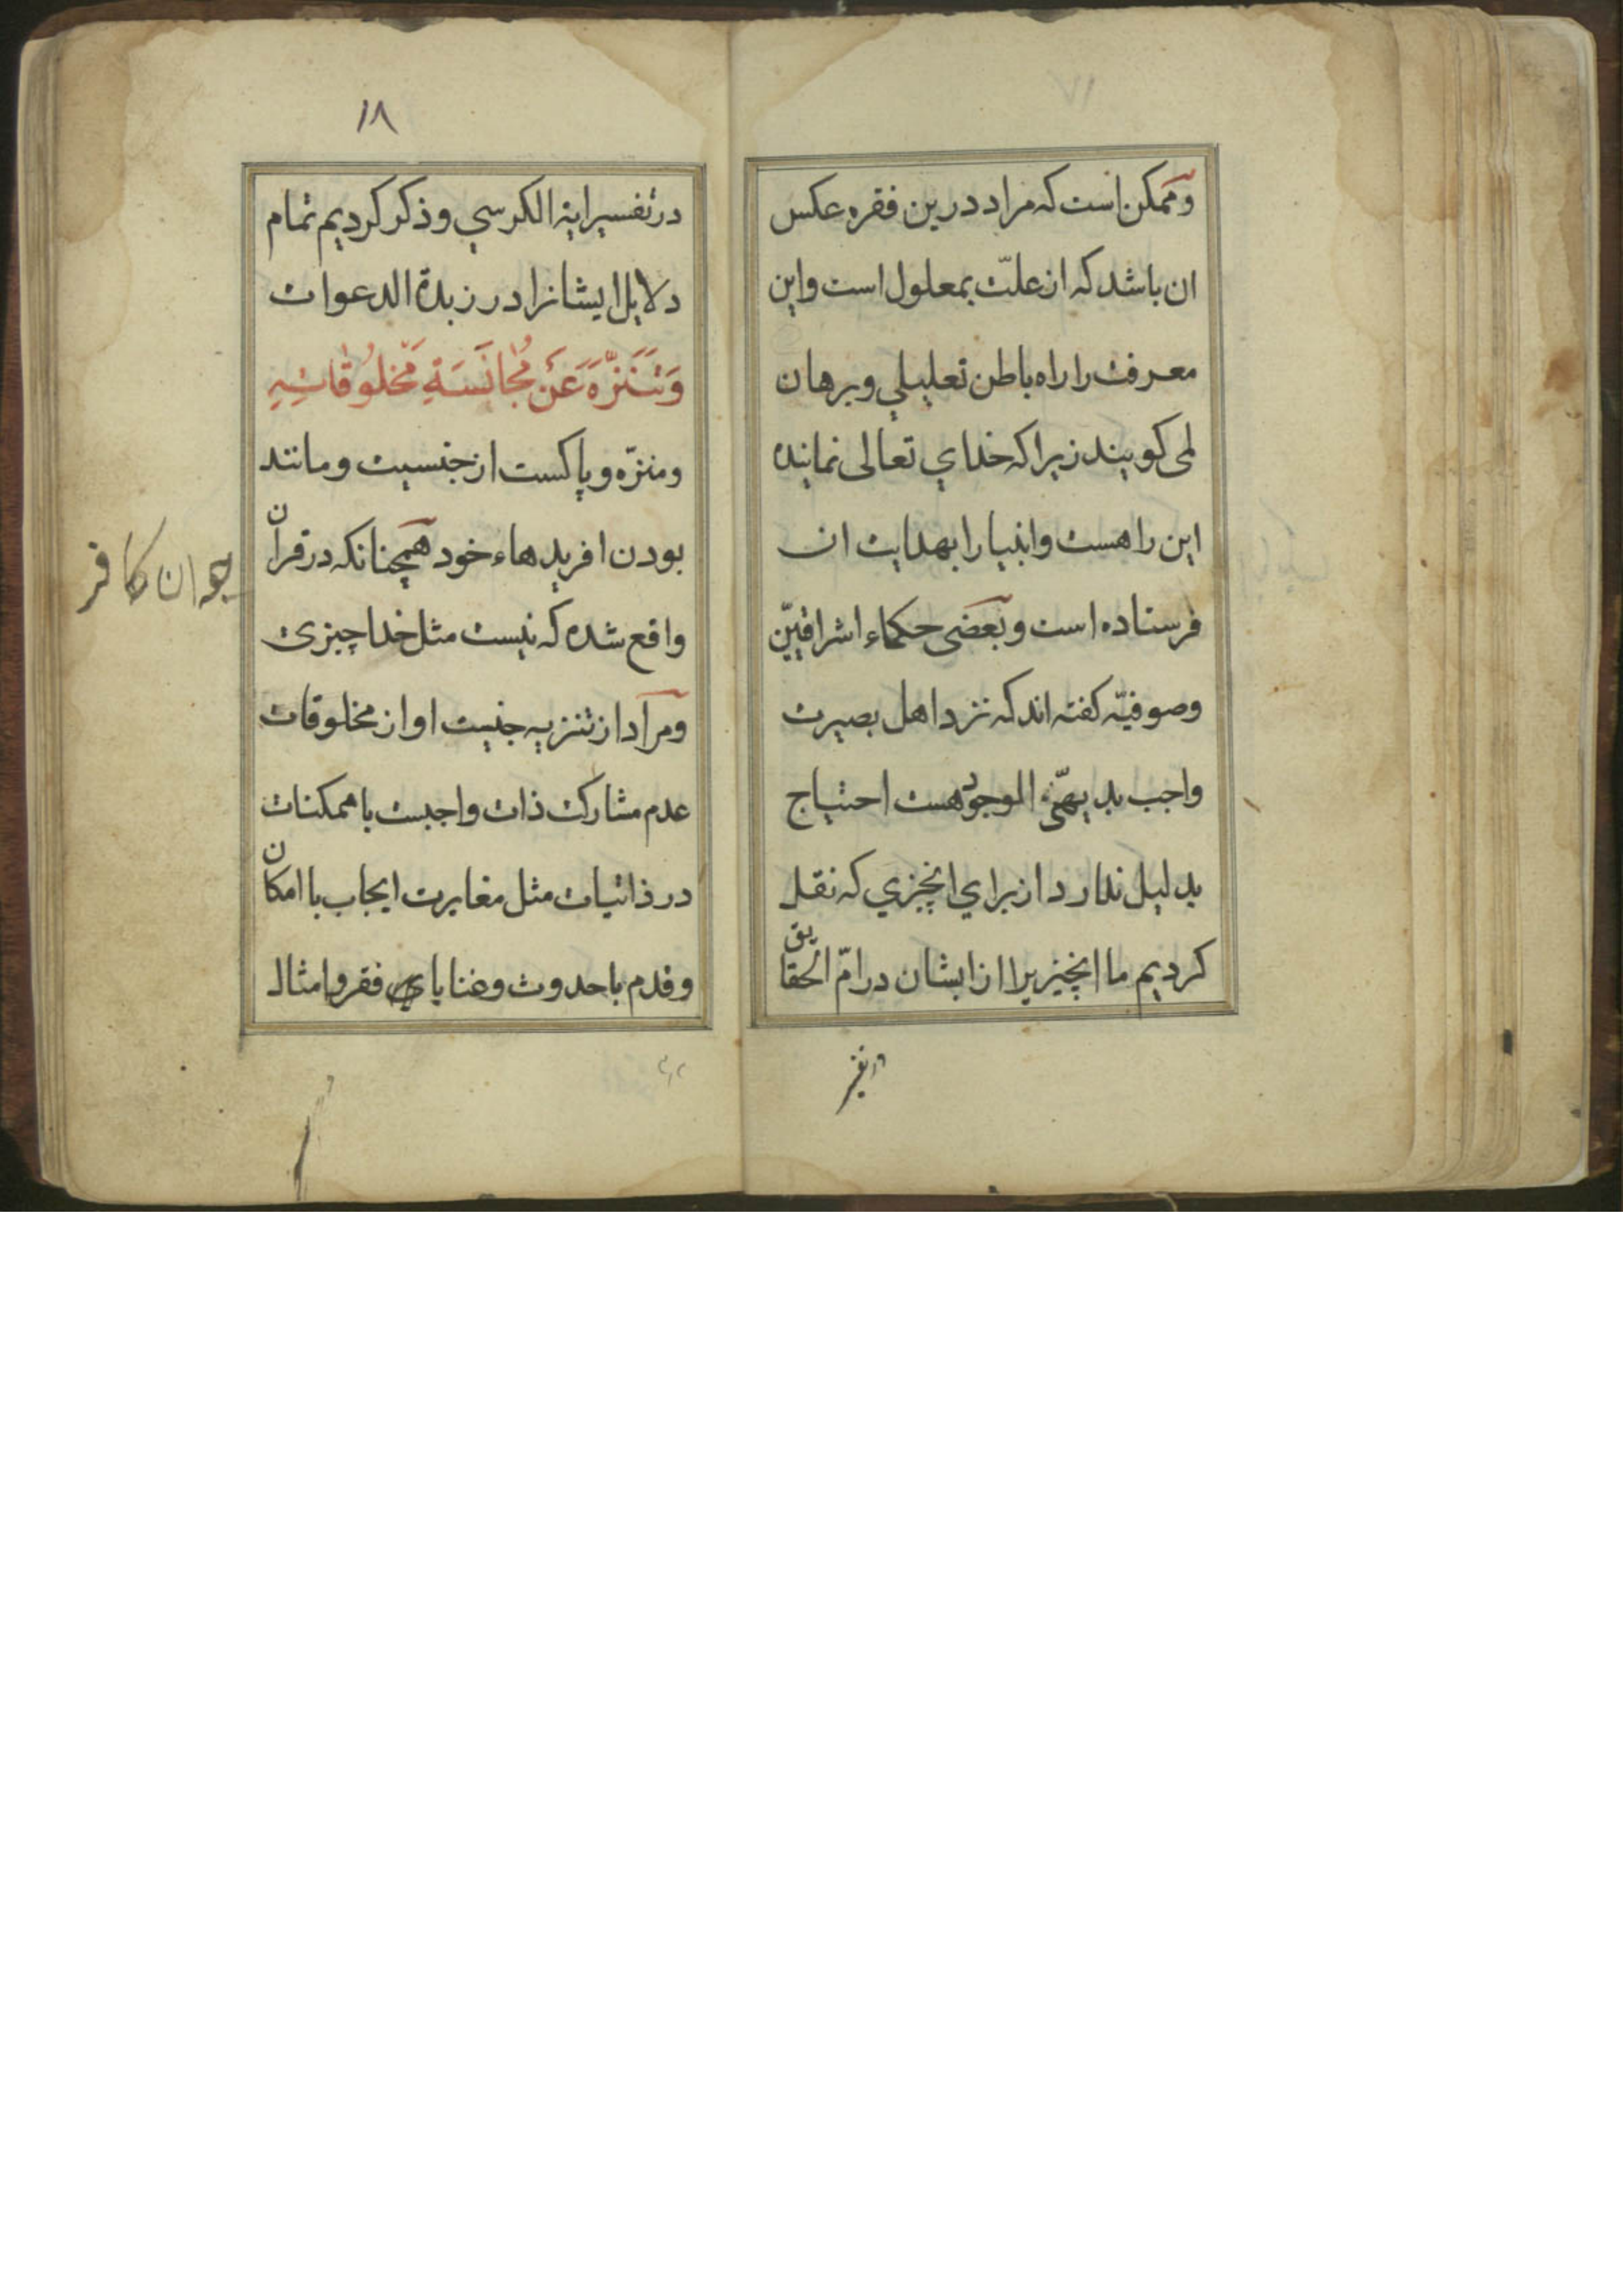 وممکن است که مراد درین فقره عکس
ان باشد که از علّت بمعلول است واین
معرفت را راه باطن تعلیلي وبرهان
لمی کویند زیرا که خداي تعالی نماینده
این راهست وانبیا را بهدایت ان
فرستاده است وبعضی حکماء اشراقیّین
وصوفیّه کفته اند که نزد اهل بصیرت
واجب بدیهيّ الموجود هست احتیاج
بدلیل ندارد از براي انچیزي که نقل
کردیم ما انچیزیرا از ایشان در امّ الحقایق
در تفسیر
١٨
در تفسیر ایة الکرسي و ذکر کردیم تمام
دلایل ایشانرا در زبدة الدعوات
وَتَنَزَّهَ عَنْ مُجانَسَةِ مَخْلُوقاتِهِ
ومنزّه و پاکست از جنسیت و مانند
بودن افریدهاء خود همچنانکه در قران
واقع شده که نیست مثل خدا چیزی
ومراد از تنزیه جنیت او از مخلوقات
عدم مشارکت ذات واجبست با ممکنات
در ذاتیات مثل مغایرت ایجاب با امکان
وقدم با حدوث وغنا با فقر و امثال
کافر